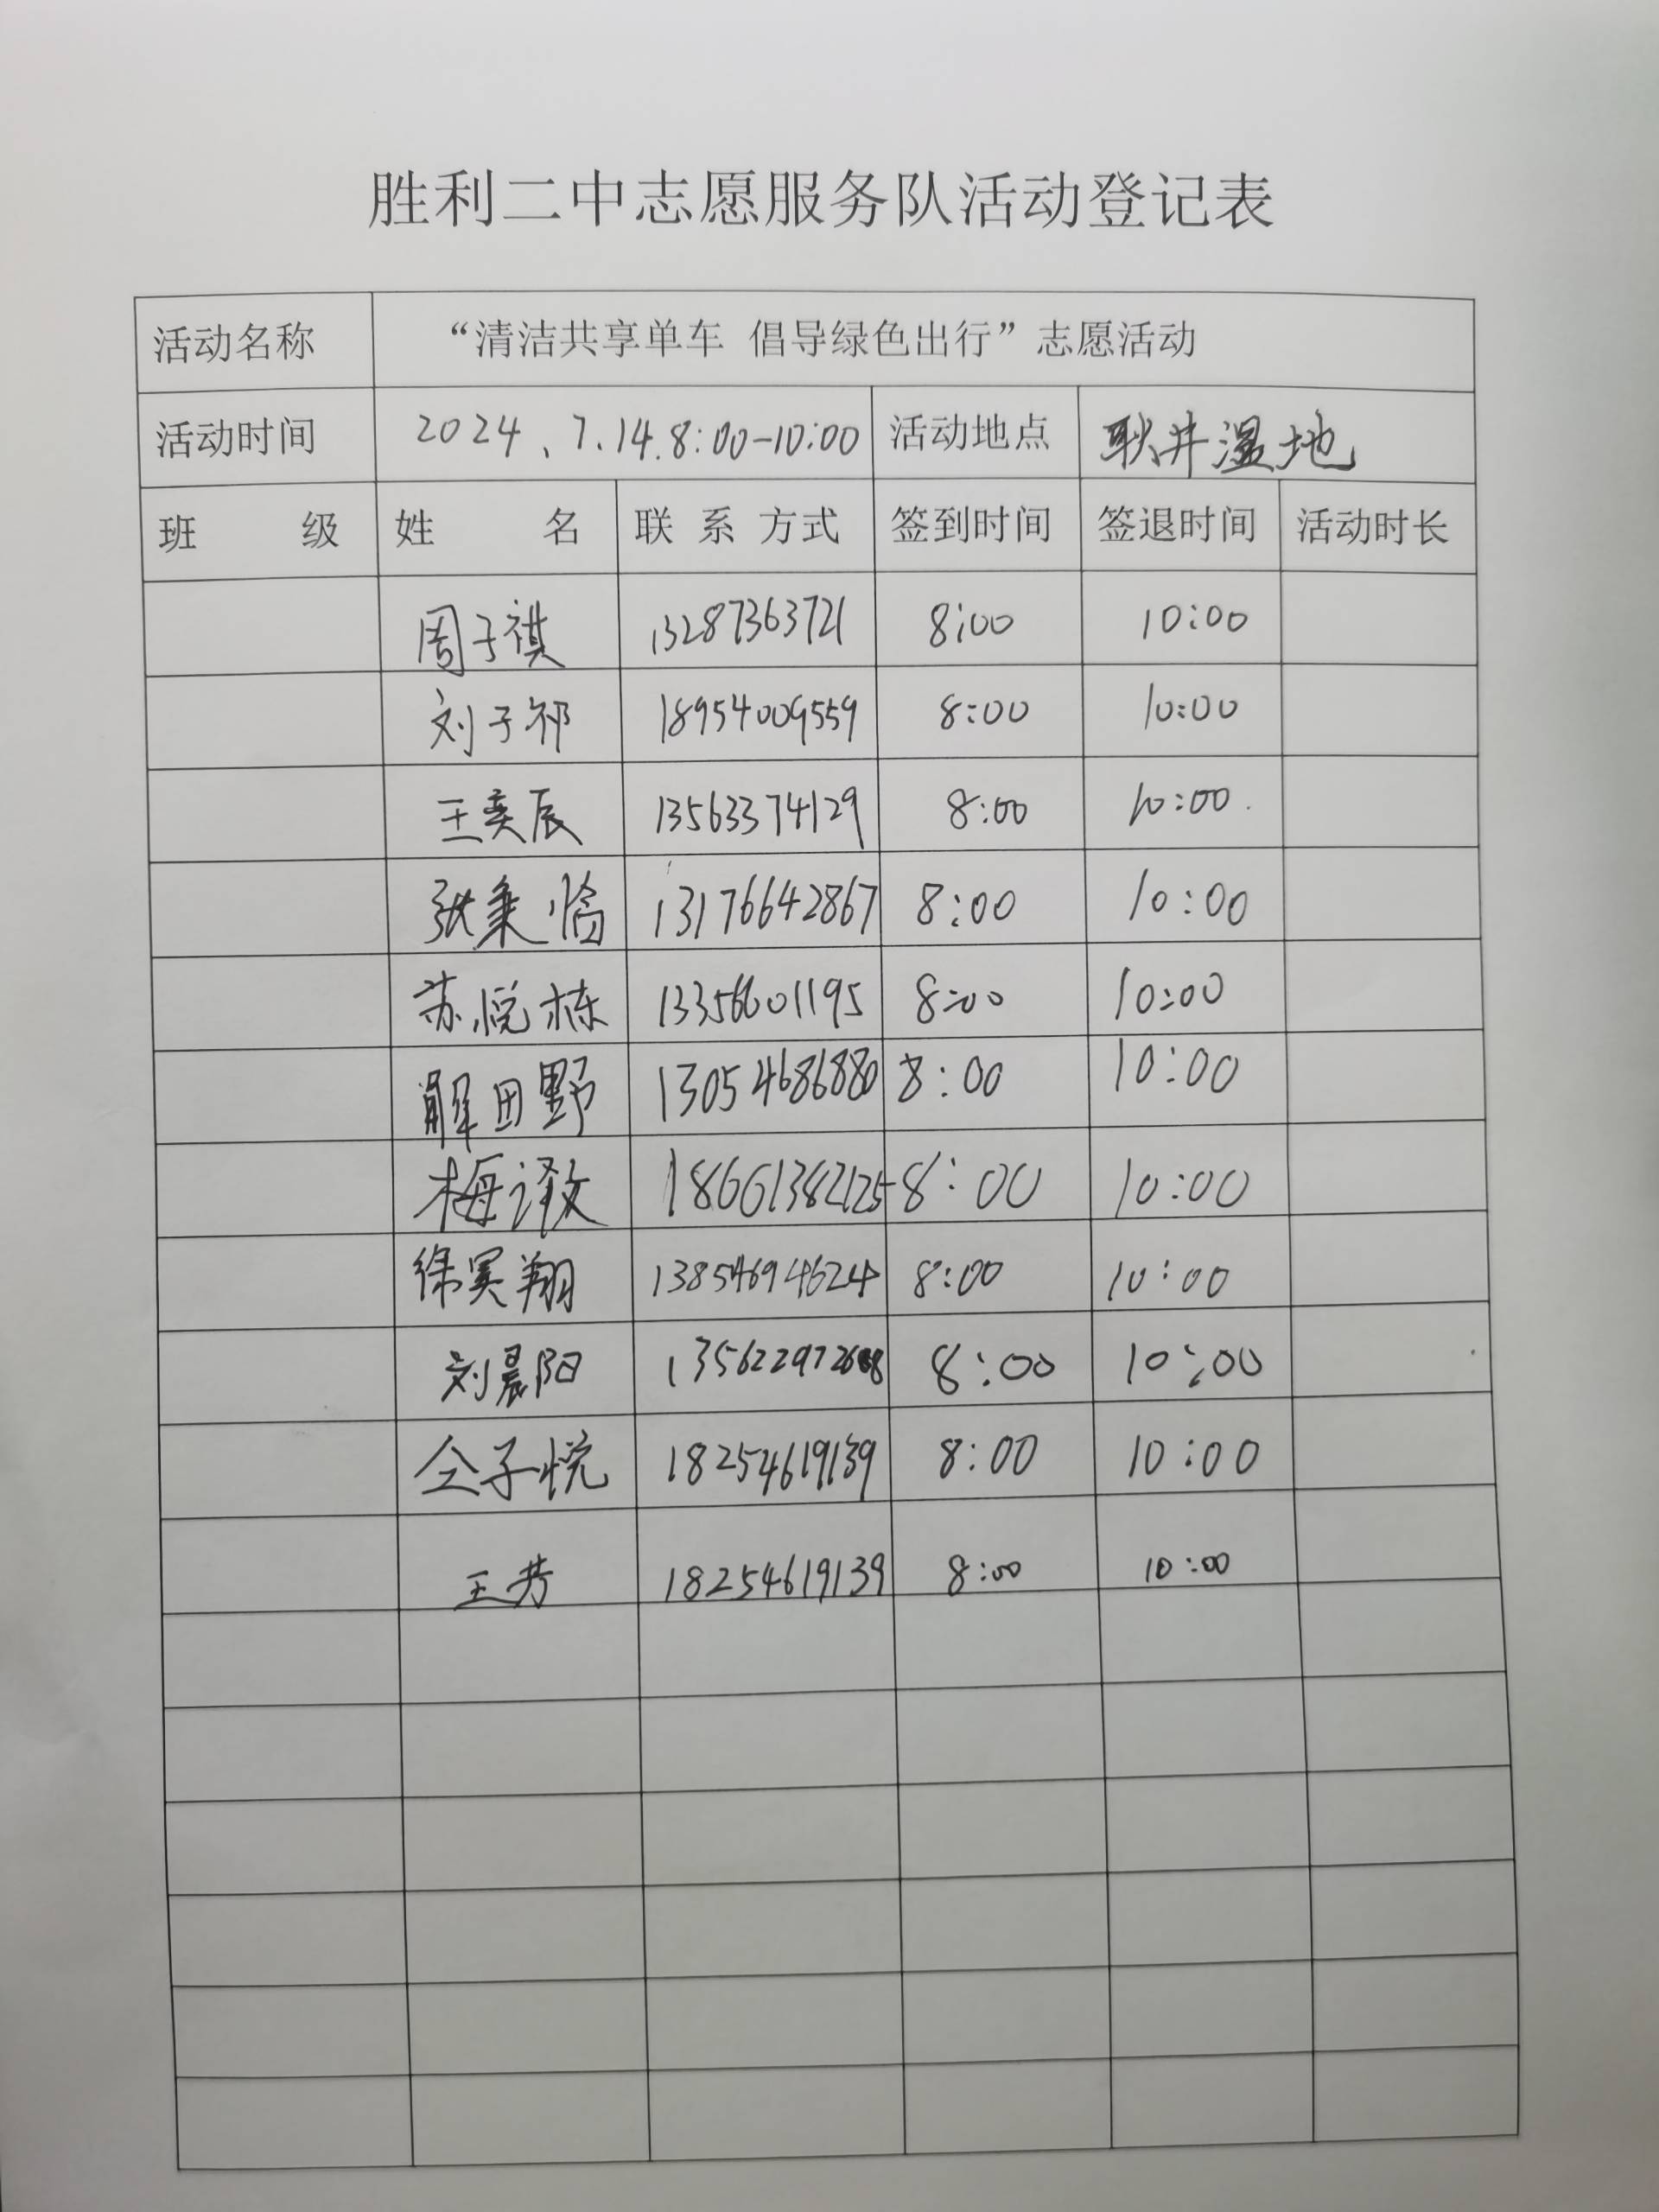 胜利二中志愿服务队活动登记表
活动名称 “清洁共享单车 倡导绿色出行”志愿活动
活动时间 2024、7.14.8:00-10:00 活动地点 耿井湿地
班 级 姓 名 联 系 方式 签到时间 签退时间 活动时长
周子祺 13287363721 8:00 10:00
刘子祁 18954009559 8:00 10:00
王奕辰 13563374129 8:00 10:00
张秉 13176642867 8:00 10:00
苏悦栋 13356601195 8:00 10:00
解田野 13054686880 8:00 10:00
梅译 18661382125 8:00 10:00
徐翔 13854694624 8:00 10:00
刘晨阳 8:00 10:00
仝子悦 18254619139 8:00 10:00
王芳 18254619139 8:00 10:00